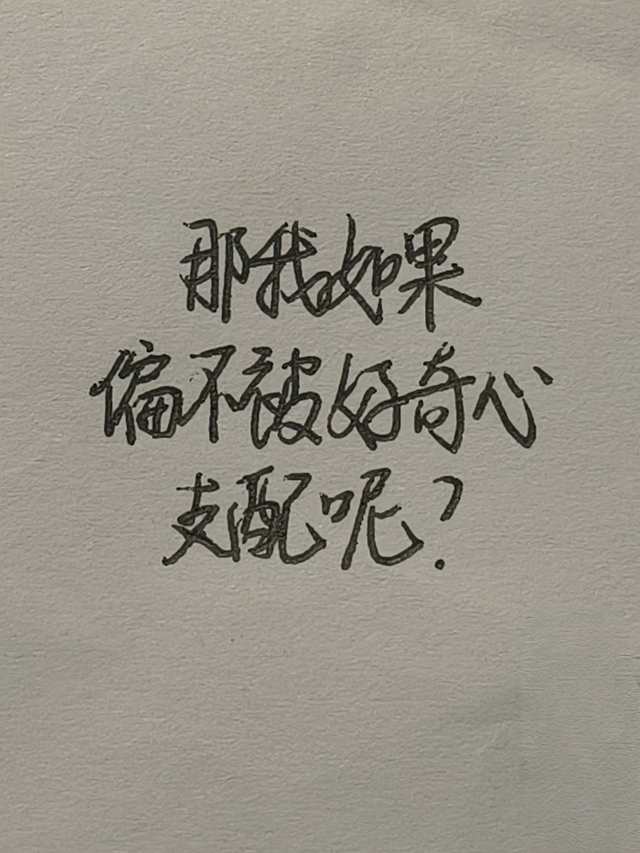 那我如果
偏不被好奇心
支配呢?